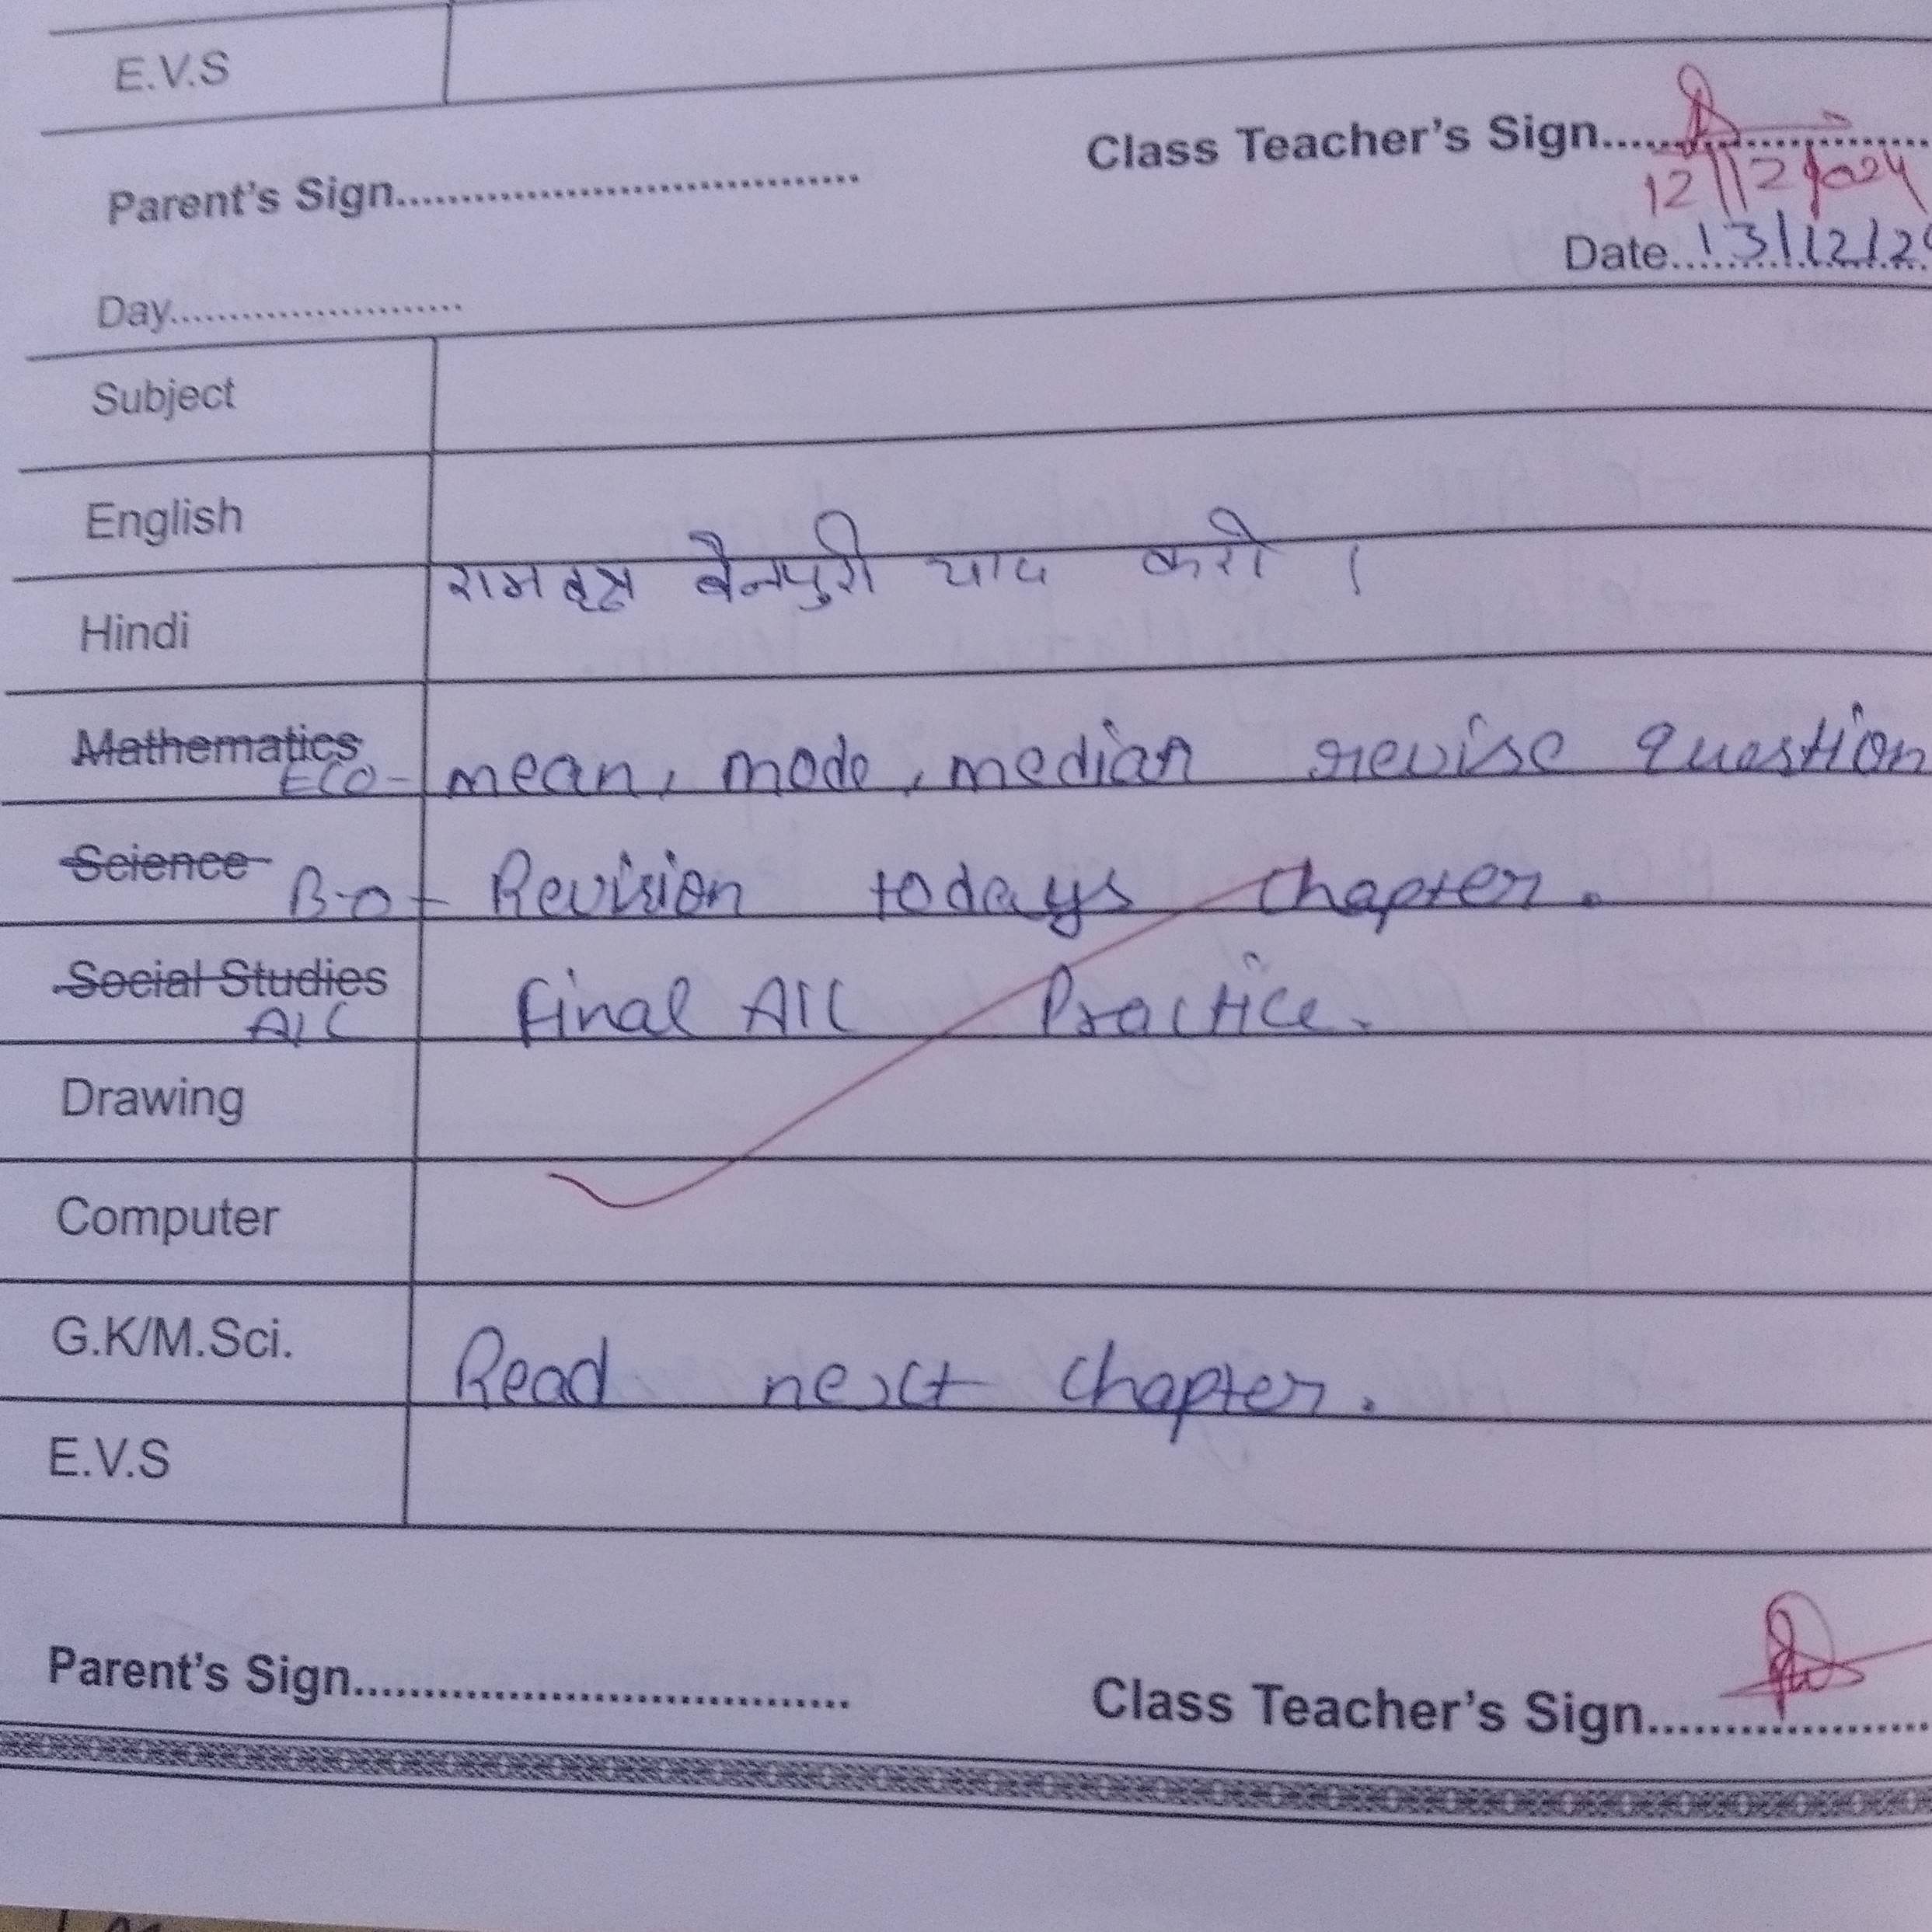 E.V.S
Class Teacher's Sign..........................
12/12/2024
Parent's Sign....................................
Date...13/12/2
Day........................
Subject
English
Hindi रामवृक्ष बेनपुरी याद करो ।
Mathematics ECO- mean, mode, median revise question
Science B.O - Revision todays chapter.
Social Studies A/C Final A/C Practice.
Drawing
Computer
G.K/M.Sci. Read next chapter.
E.V.S
Parent's Sign....................................
Class Teacher's Sign.....................